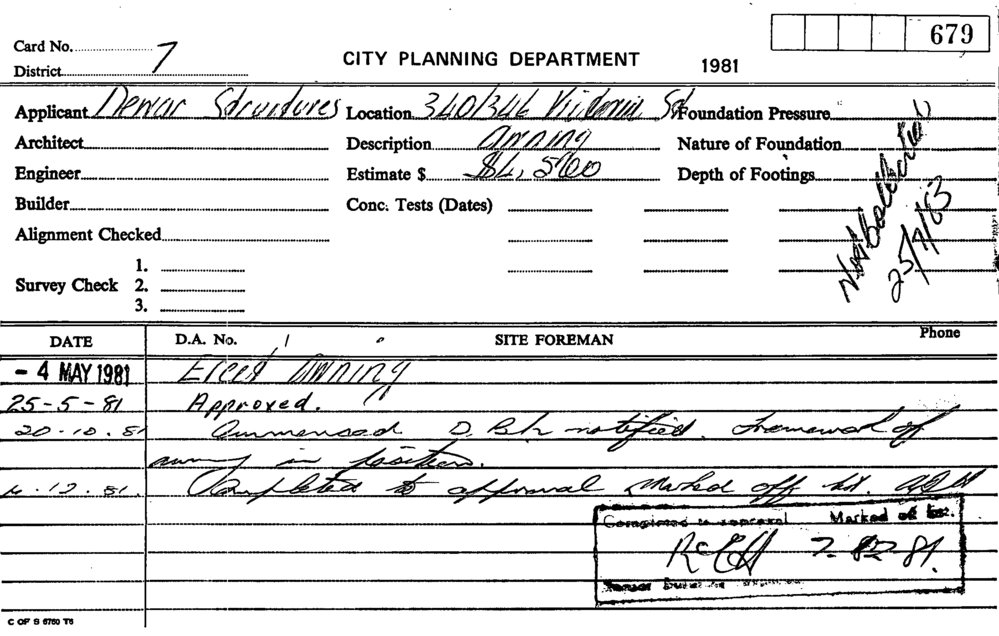 679
Card No. 7
District
CITY PLANNING DEPARTMENT 1981
Applicant Dewar Structures Location 340/346 Victoria St Foundation Pressure
Architect Description awning Nature of Foundation
Engineer Estimate $ $4,500 Depth of Footings
Builder Conc. Tests (Dates)
Alignment Checked
25/7/83
1.
Survey Check 2.
3.
DATE D.A. No. SITE FOREMAN Phone
- 4 MAY 1981 Erect awning
25-5-81 Approved.
20.10.81 Commenced D. notified. Framework of
awning in position.
4.12.81. Completed to approval Marked off list.
Completed to approval Marked off list.
7.12.81.
C OF S 6760 T6